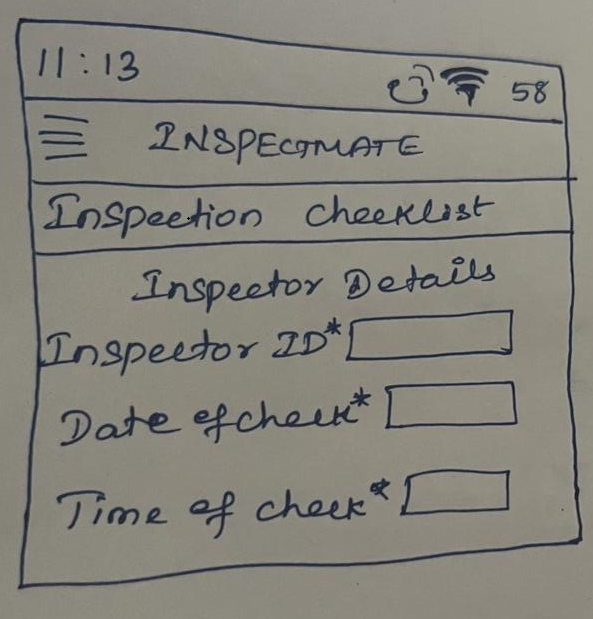 11:13 58
INSPECTMATE
Inspection Checklist
Inspector Details
Inspector ID*
Date of check*
Time of check*